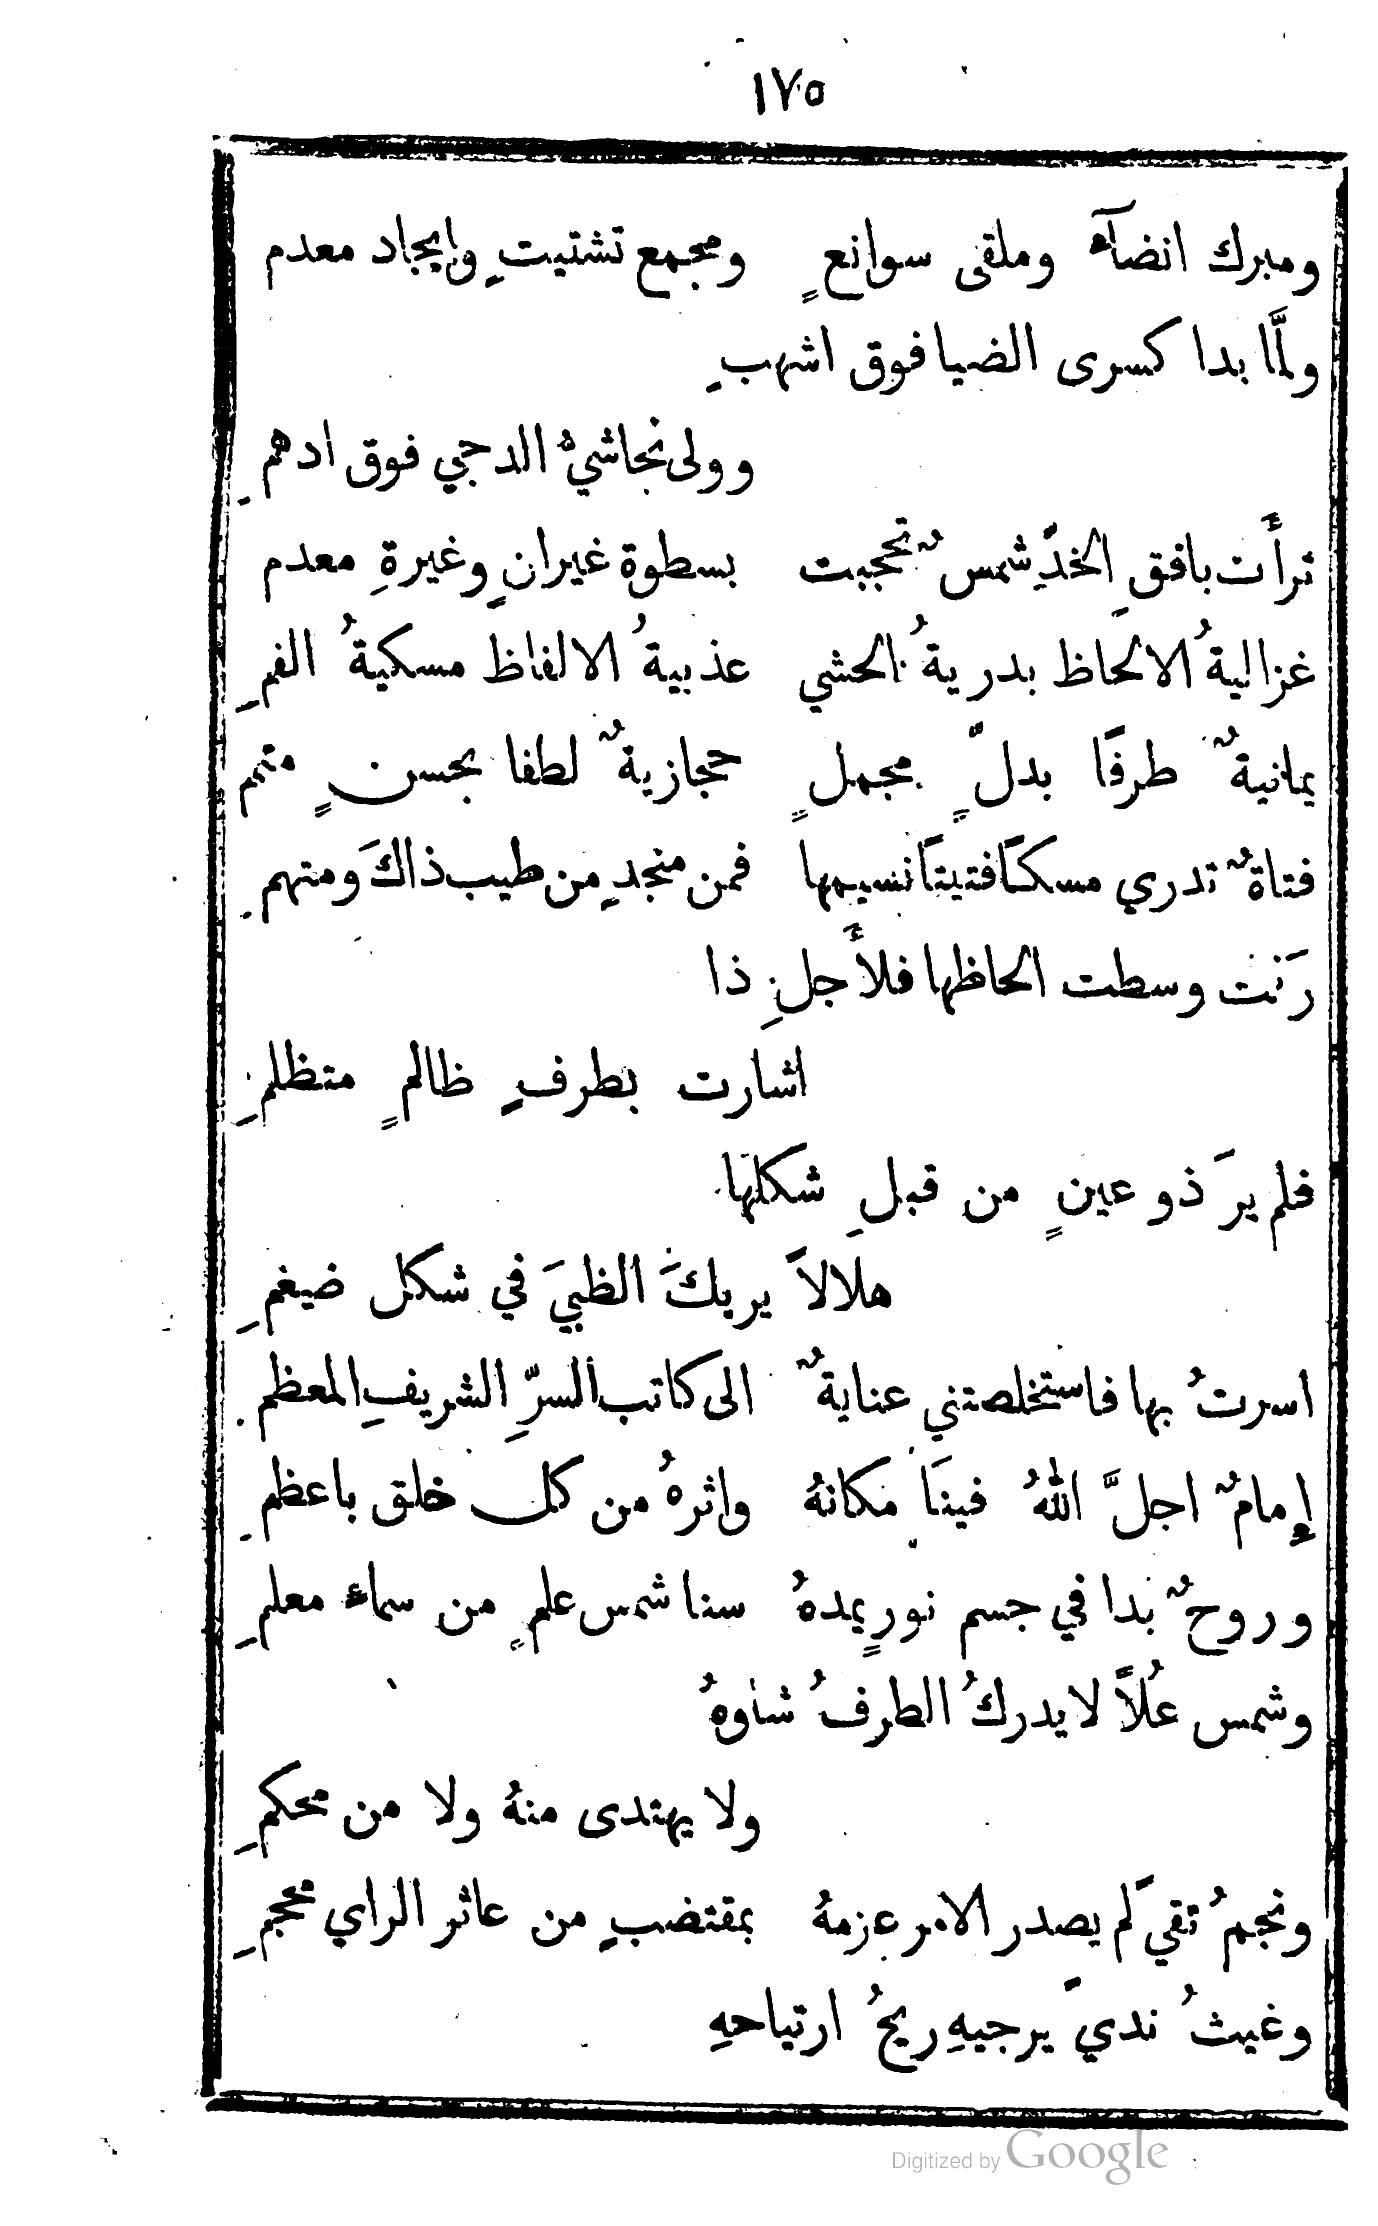 ١٧٥
ومبرك انضآء وملقى سوانعٍ ومجمع تشتيتٍ وايجاد معدم
ولمَّا بدا كسرى الضيا فوق اشهبٍ
وولى نجاشيُّ الدجي فوق ادهمِ
ترأَت بافقِ الخدِّ شمسٌ تحجبت بسطوة غيرانٍ وغيرةِ معدم
غزاليةُ الالحاظ بدريةُ الحشي عذبيةُ الالفاظ مسكيةُ الفمِ
يمانيةٌ طرفًا بدلٍّ مجملٍ حجازيةٌ لطفا بحسنٍ متمم
فتاةٌ تدري مسكًا فتيتًا نسيمها فمن منجدٍ من طيب ذاكَ ومتهمِ
رَنت وسطت الحاظها فلأَجلِ ذا
اشارت بطرفٍ ظالمٍ متظلمِ
فلم يرَ ذو عينٍ من قبلِ شكلها
هلالاً يريكَ الظبيَ في شكل ضيغمِ
اسرتُ بها فاستخلصتني عنايةٌ الى كاتب السرِّ الشريفِ المعظمِ
إمامٌ اجلَّ اللهُ فينَا مكانهُ واثرهُ من كل خلق باعظمِ
وروحٌ بدا في جسم نورٍ يمدهُ سنا شمس علمٍ من سماء معلمِ
وشمس عُلاً لا يدركُ الطرفُ شاوهُ
ولا يهتدى منهُ ولا من محكمِ
ونجمُ تقيً لم يصدر الامر عزمهُ بمقتضبٍ من عاثر الراي محجمِ
وغيثُ نديً يرجيهِ ريحُ ارتياحهِ
Digitized by Google